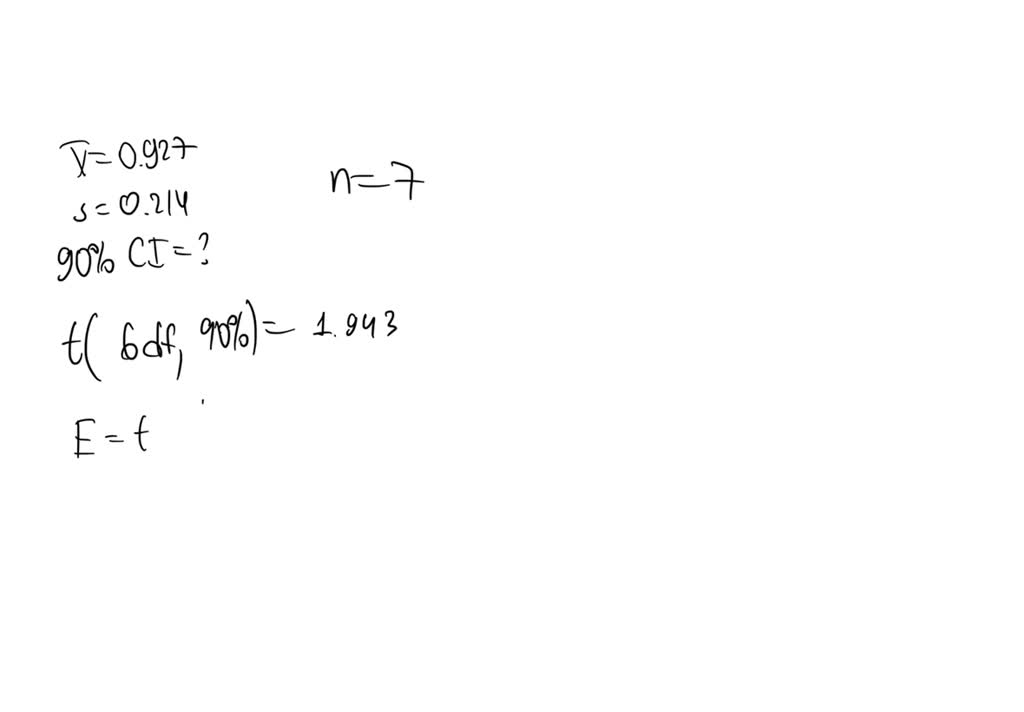 x̅=0.927
n=7
s=0.214
90% CI=?
t(6df, 90%)=1.943
E=t